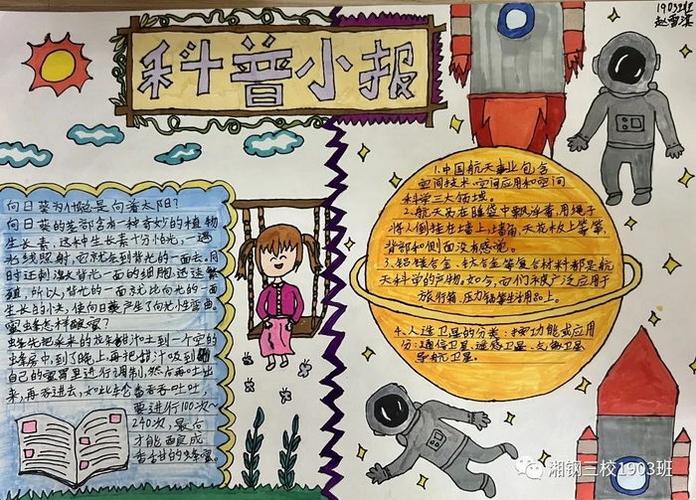 科普小报
1903班
向日葵为什么总是向着太阳?
向日葵的茎部含有一种奇妙的植物
生长素,这种生长素十分怕光,一遇
光线照射,它就会到背光的一面去,同
时还刺激背光一面的细胞迅速繁
殖,所以,背光的一面就比向光的一面
生长的快,使向日葵产生了向光性弯曲。
蜜蜂怎样酿蜜?
蜂先把采来的花朵甜汁吐到一个空的
蜂房中,到了晚上,再把甜汁吸到
自己的蜜胃里进行调制,然后再吐出
来,再吞进去,如此轮番吞吞吐吐,
要进行100次~
240次,最后
才能酿成
香甜的蜂蜜。
1.中国航天事业包含
空间技术、空间应用和空间
科学三大领域。
2.航天员在睡袋中飘浮着,用绳子
将人倒挂在墙上,墙角,天花板上等等,
背部和侧面没有感觉。
3.铝镁合金、钛合金等复合材料都是航
天科学的产物,如今,它们还被广泛应用于
旅行箱、压力锅等生活用品上。
4.人造卫星的分类:按功能或应用
分:通信卫星、遥感卫星、气象卫星
导航卫星。
湘钢三校1903班